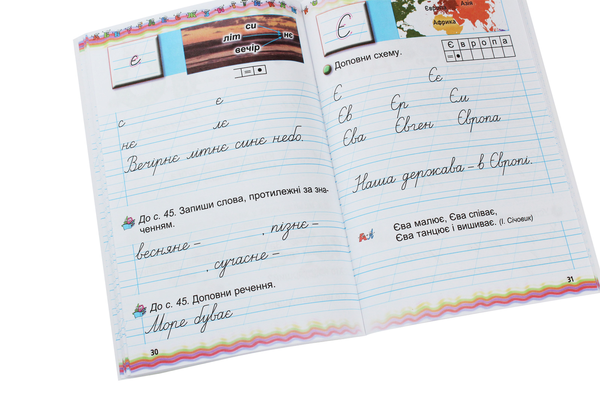 си
літ
нє
вечір
є
=
є
с є
нє лє
Вечірнє літнє синє небо.
До с. 45. Запиши слова, протилежні за зна-
ченням.
весняне – , пізнє –
, сучасне –
До с. 45. Доповни речення.
Море буває
30
Є
Азія
Африка
Європа
=
Доповни схему.
Є Єє
Єв Єр Єм
Єва Євген Європа
Наша держава – в Європі.
Єва малює, Єва співає,
Єва танцює і вишиває. (І. Січовик)
31